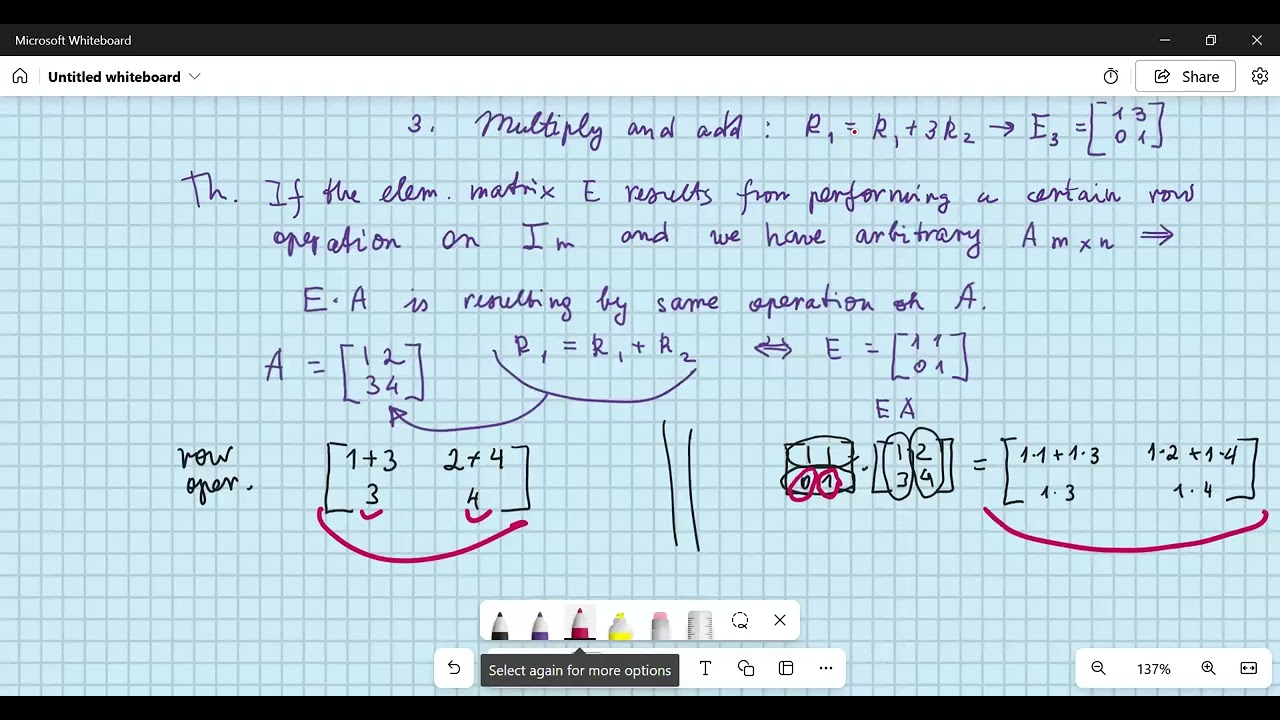 Microsoft Whiteboard
Untitled whiteboard
Share
3. Multiply and add : R₁ = R₁ + 3R₂ → E₃ = [1 3
0 1]
Th. If the elem. matrix E results from performing a certain row
operation on I m and we have arbitrary A m×n ⇒
E · A is resulting by same operation on A.
A = [1 2
3 4]
R₁ = R₁ + R₂ ⇔ E = [1 1
0 1]
E A
row
oper.
[1+3 2+4
3 4]
[1 1
0 1] · [1 2
3 4] = [1·1+1·3 1·2+1·4
1·3 1·4]
Select again for more options
T
137%